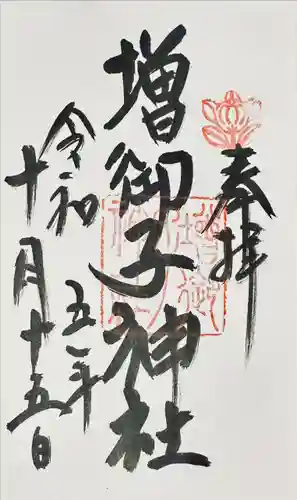 奉拝
増御子神社
令和五年
十月十五日